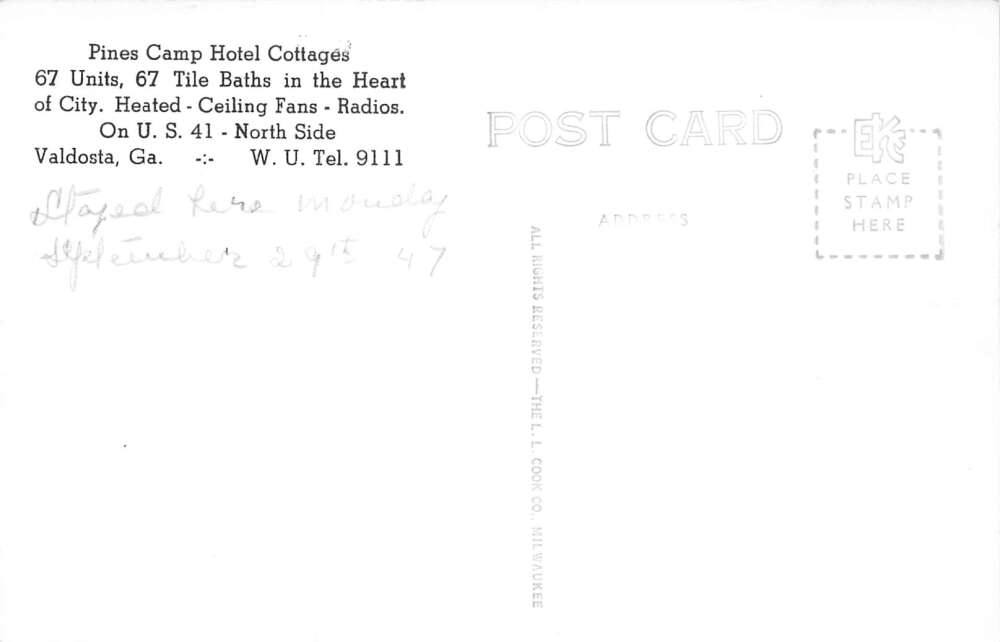 Pines Camp Hotel Cottages
67 Units, 67 Tile Baths in the Heart
of City. Heated - Ceiling Fans - Radios.
On U. S. 41 - North Side
Valdosta, Ga. -:- W. U. Tel. 9111
Stayed here Monday
September 29th 47
POST CARD
ADDRESS
EKC
PLACE
STAMP
HERE
ALL RIGHTS RESERVED—THE L. L. COOK CO., MILWAUKEE